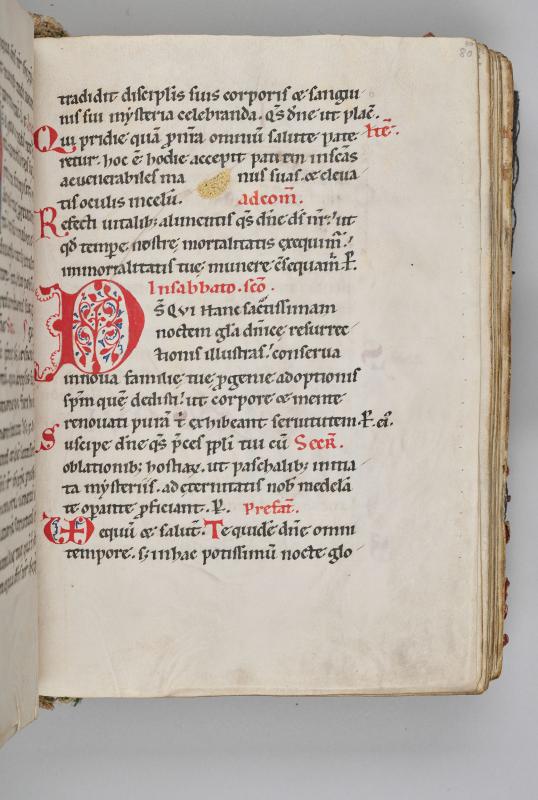 80
tradidit discipĺis suis corporis & sangui
nis sui mẏsteria celebranda. q̄s dn̄e ut plac̄.
Qui pridie quā p n̄r̄a omniū salute pate It̄e.
retur. hoc ē hodie accepit panem in sc̄as
ac uenerabiles ma nus suas. & eleua
tis oculis in celū. ad com̄.
Refecti uitalib; alimentis q̄s dn̄e ds̄ nr̄. ut
qd̄ tempe nostrę mortalitatis exequim̄.
immortalitatis tuę munere c̄sequam̄. P.
In sabbato. sc̄o.
DS̄ QVI Hanc sac̄tissimam
noctem gl̄a dn̄icę resurrec
tionis illustras. conserua
in noua familię tuę p̄genie adoptionis
sp̄m quē dedisti. ut corpore & mente
renouati purā t̄ exhibeant seruitutem. P. ei.
Suscipe dn̄e q̄s p̄ces ppl̄i tui cū Secr̄.
oblationib; hostiar̄. ut paschalib; initia
ta mẏsteriis. ad eternitatis nob̄ medelā
te opante pficiant. P. Prefat̄.
Vequū & salut̄. Te quidē dn̄e omni
tempore. s; in hac potissimū nocte glo